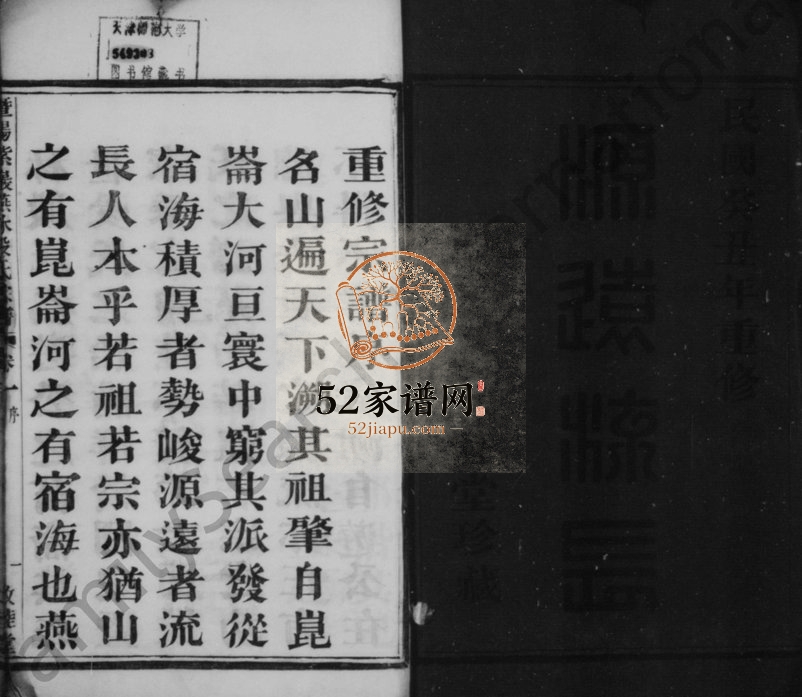 民國 年重修
堂珍藏
天津師範大学
549303
图书馆藏书
重修宗譜序
名山遍天下溯其祖肇自崑
崙大河亘寰中窮其派發從
宿海積厚者勢峻源遠者流
長人本乎若祖若宗亦猶山
之有崑崙河之有宿海也燕
卷一 序 一
52家谱网
52jiapu.com
FamilySearch International